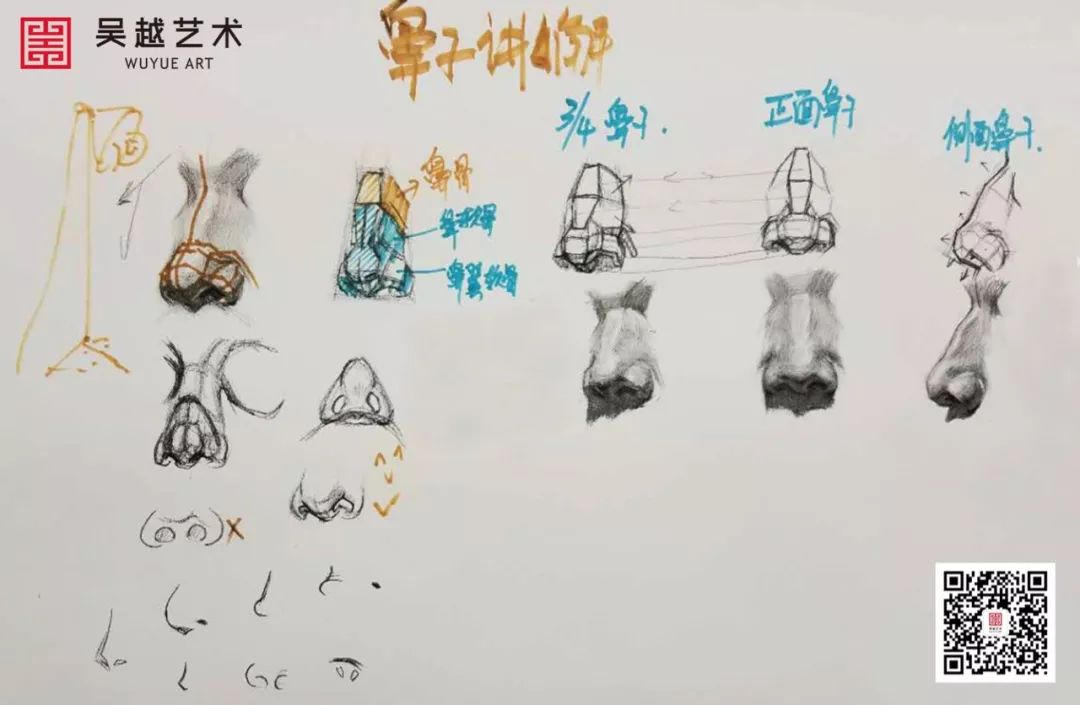 吴越艺术
WUYUE ART
鼻子讲解
3/4 鼻子.
正面鼻子
侧面鼻子.
鼻骨
鼻软骨
鼻翼软骨